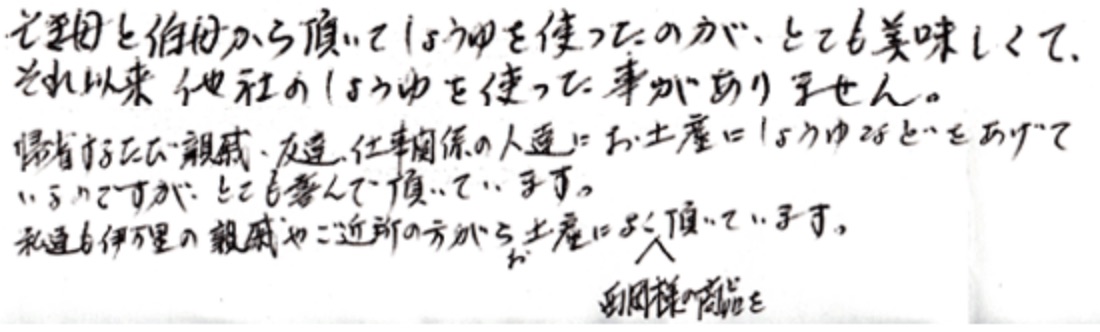 母と伯母から頂いてしょうゆを使ったのが、とても美味しくて、
それ以来他社のしょうゆを使った事がありません。
帰省するたび親戚、友達、仕事関係の人達にお土産にしょうゆなどをあげて
いるのですが、とても喜んで頂いています。
私達も伊万里の親戚やご近所の方からお土産によく頂いています。
様の商品を